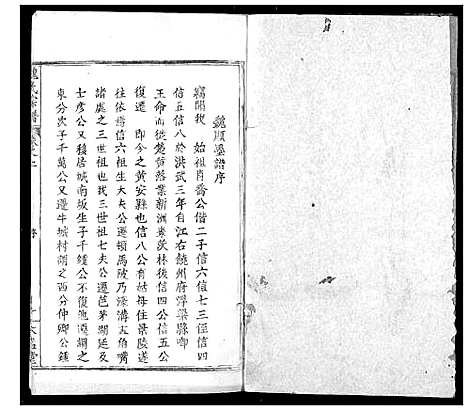 魏順墨譜序
竊聞我 始祖肖喬公偕二子信六信七三侄信四
信五信八於洪武三年自江右饒州府浮梁縣啣
王命而徙楚黃落業新洲茨林後信四公信五公
復遷 即今之黃安縣也信八公有姑母住景陵遂
往依焉信六祖生大夫公遷頓馬陂乃深溝大伯嘴
諸處之三世祖也我三世祖七夫公遷芭茅湖延及
士彥公又移居城南坂生子千鍾公不復他遷湖之
東分次子千萬公又遷牛城村湖之西分仲卿公鍾
魏氏宗譜
序